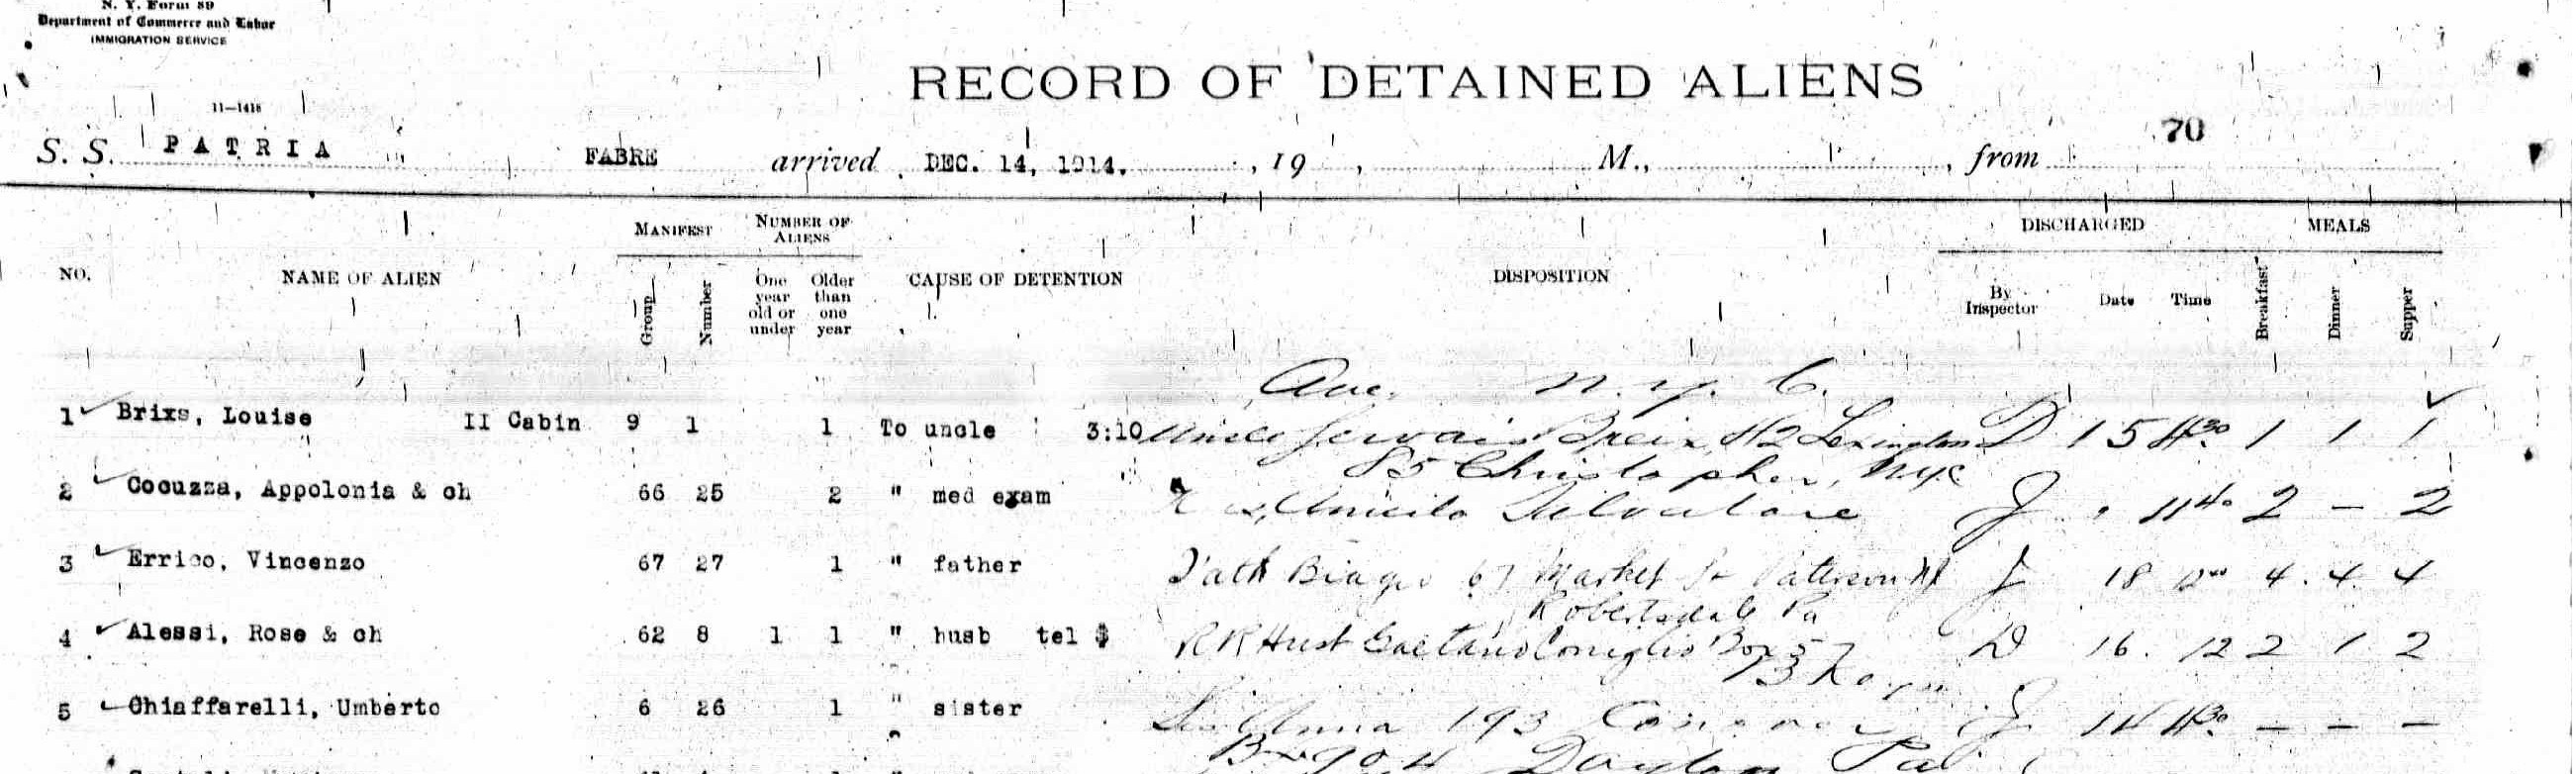 N. Y. Form 89
Department of Commerce and Labor
IMMIGRATION SERVICE
11—1416
RECORD OF DETAINED ALIENS
70
S. S. PATRIA FABRE arrived DEC. 14, 1914. , 19 , M., , from
MANIFEST NUMBER OF ALIENS DISCHARGED MEALS
NO. NAME OF ALIEN Group Number One year old or under Older than one year CAUSE OF DETENTION DISPOSITION By Inspector Date Time Breakfast Dinner Supper
Ave. N. Y. C.
1 Brixs, Louise II Cabin 9 1 1 To uncle 3:10 Uncle Gervais 812 Lexington D 15 1 1 1
85 Christopher, NYC
2 Cocuzza, Appolonia & ch 66 25 2 " med exam J 11 40 2 — 2
3 Errico, Vincenzo 67 27 1 " father Fath Biagio 67 Market St Paterson NJ J 18 4 4 4
Robertsdale Pa
4 Alessi, Rose & ch 62 8 1 1 " husb tel $ RR Husb Gaetano Coniglio Box 57 D 16 12 2 1 2
5 Chiaffarelli, Umberto 6 26 1 " sister Sis Anna 193 J — — —
Box 904 Pa